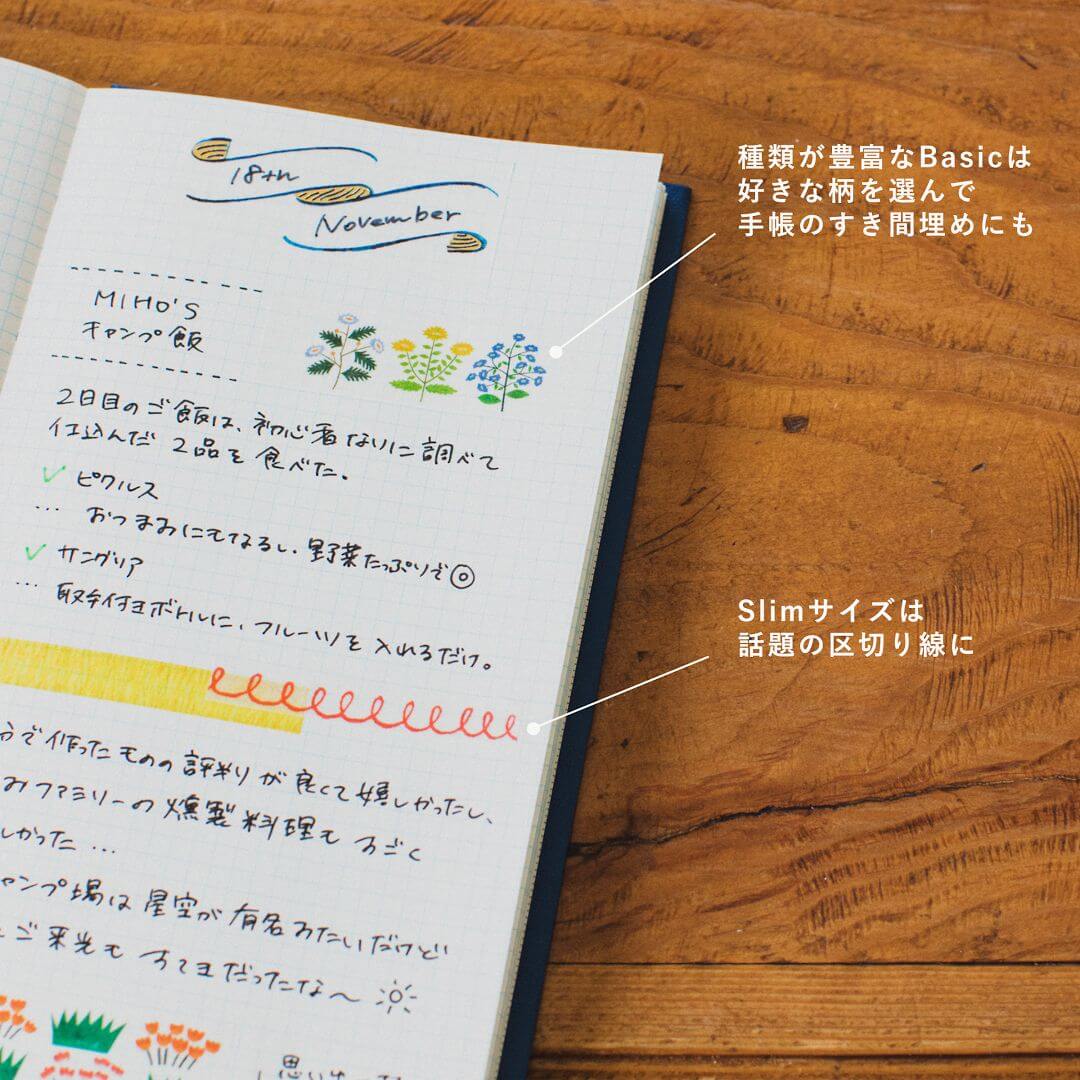 18th
November
MIHO'S
キャンプ飯
2日目のご飯は、初心者なりに調べて
仕込んだ 2品を食べた。
✓ ピクルス
… おつまみにもなるし、野菜たっぷりで◎
✓ サングリア
… 取手付きボトルに、フルーツを入れるだけ。
うで作ったものの評判が良くて嬉しかったし、
みファミリーの燻製料理もすごく
しかった…
ャンプ場は星空が有名みたいだけど
ご来光もすてきだったな〜
思い出
種類が豊富なBasicは
好きな柄を選んで
手帳のすき間埋めにも
Slimサイズは
話題の区切り線に